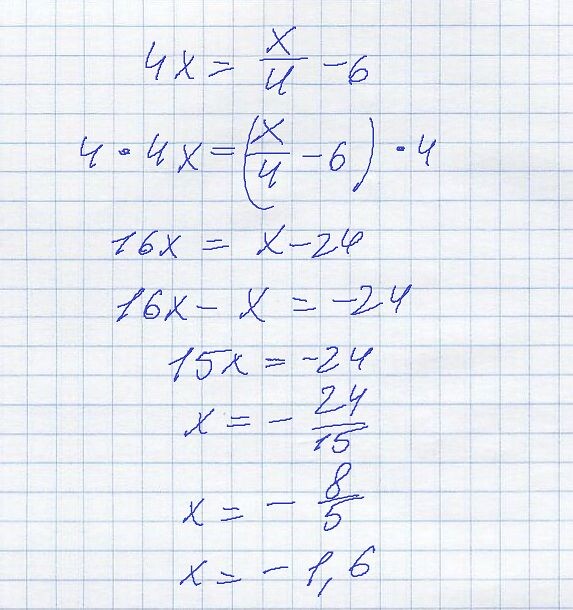 4x = x/4 - 6
4 • 4x = (x/4 - 6) • 4
16x = x - 24
16x - x = -24
15x = -24
x = - 24/15
x = - 8/5
x = - 1,6